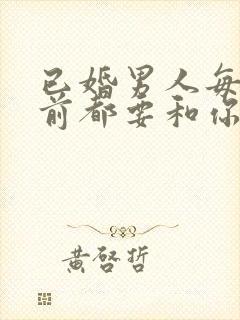 已婚男人每
前都要和你
黄启哲